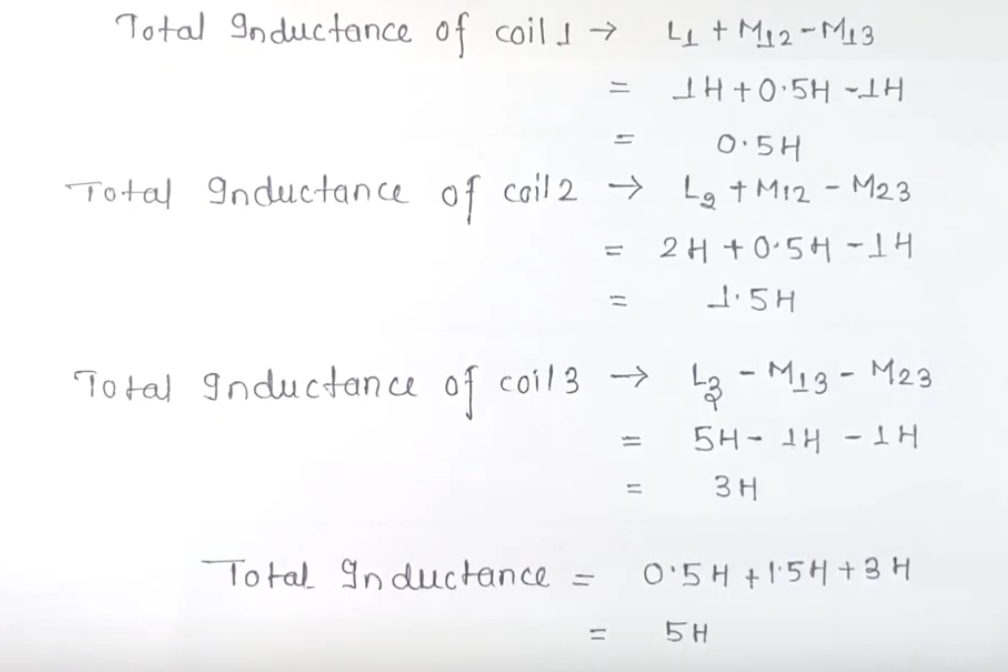 Total Inductance of coil 1 → L₁ + M₁₂ - M₁₃
= 1H + 0.5H - 1H
= 0.5H
Total Inductance of coil 2 → L₂ + M₁₂ - M₂₃
= 2H + 0.5H - 1H
= 1.5H
Total Inductance of coil 3 → L₃ - M₁₃ - M₂₃
= 5H - 1H - 1H
= 3H
Total Inductance = 0.5H + 1.5H + 3H
= 5H